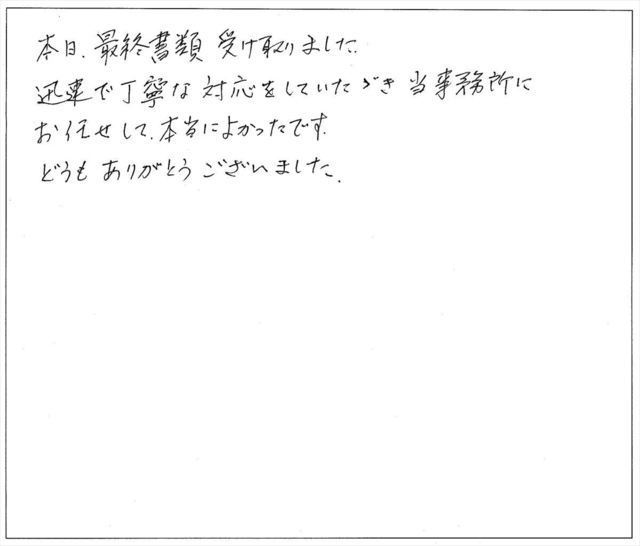 本日、最終書類 受け取りました。
迅速で丁寧な対応をしていただき 当事務所に
お任せして、本当によかったです。
どうも ありがとうございました。